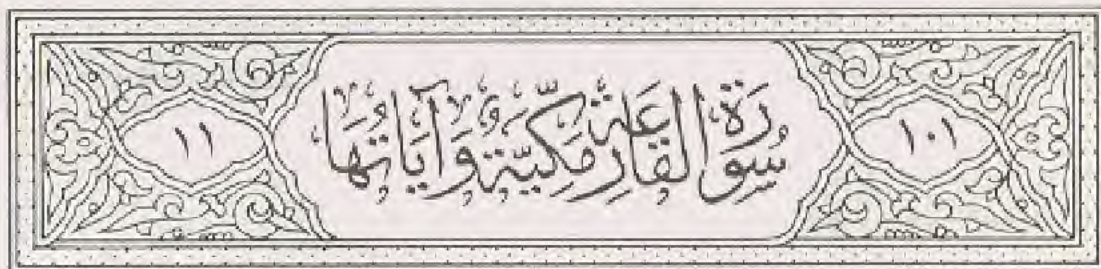 ١٠١ سُورَةُ القَارِعَةِ مَكِيَّةٌ وَآيَاتُهَا ١١